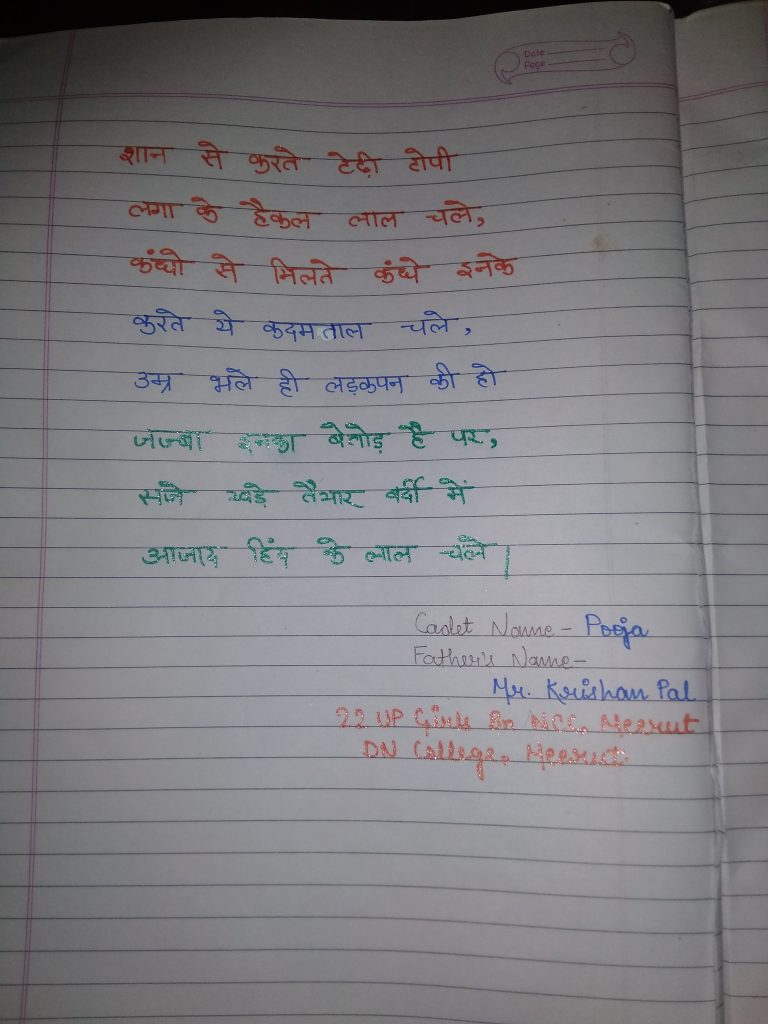 Date
Page
शान से करते टेढ़ी टोपी
लगा के हैकल लाल चले,
कंधो से मिलते कंधे इनके
करते ये कदमताल चले,
उम्र भले ही लड़कपन की हो
जज्बा इनका बेजोड़ है पर,
सजे खड़े तैयार वर्दी में
आजाद हिंद के लाल चले।
Cadet Name - Pooja
Father's Name -
Mr. Krishan Pal
22 UP Girls Bn NCC, Meerut
DN College, Meerut.